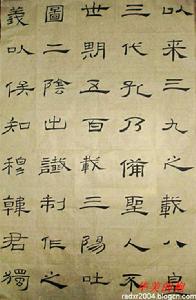 以来三九之載八皇
三代孔乃備聖人不
世期五百載三陽吐
圖二陰出讖制作之
義以俟知穆韓君獨